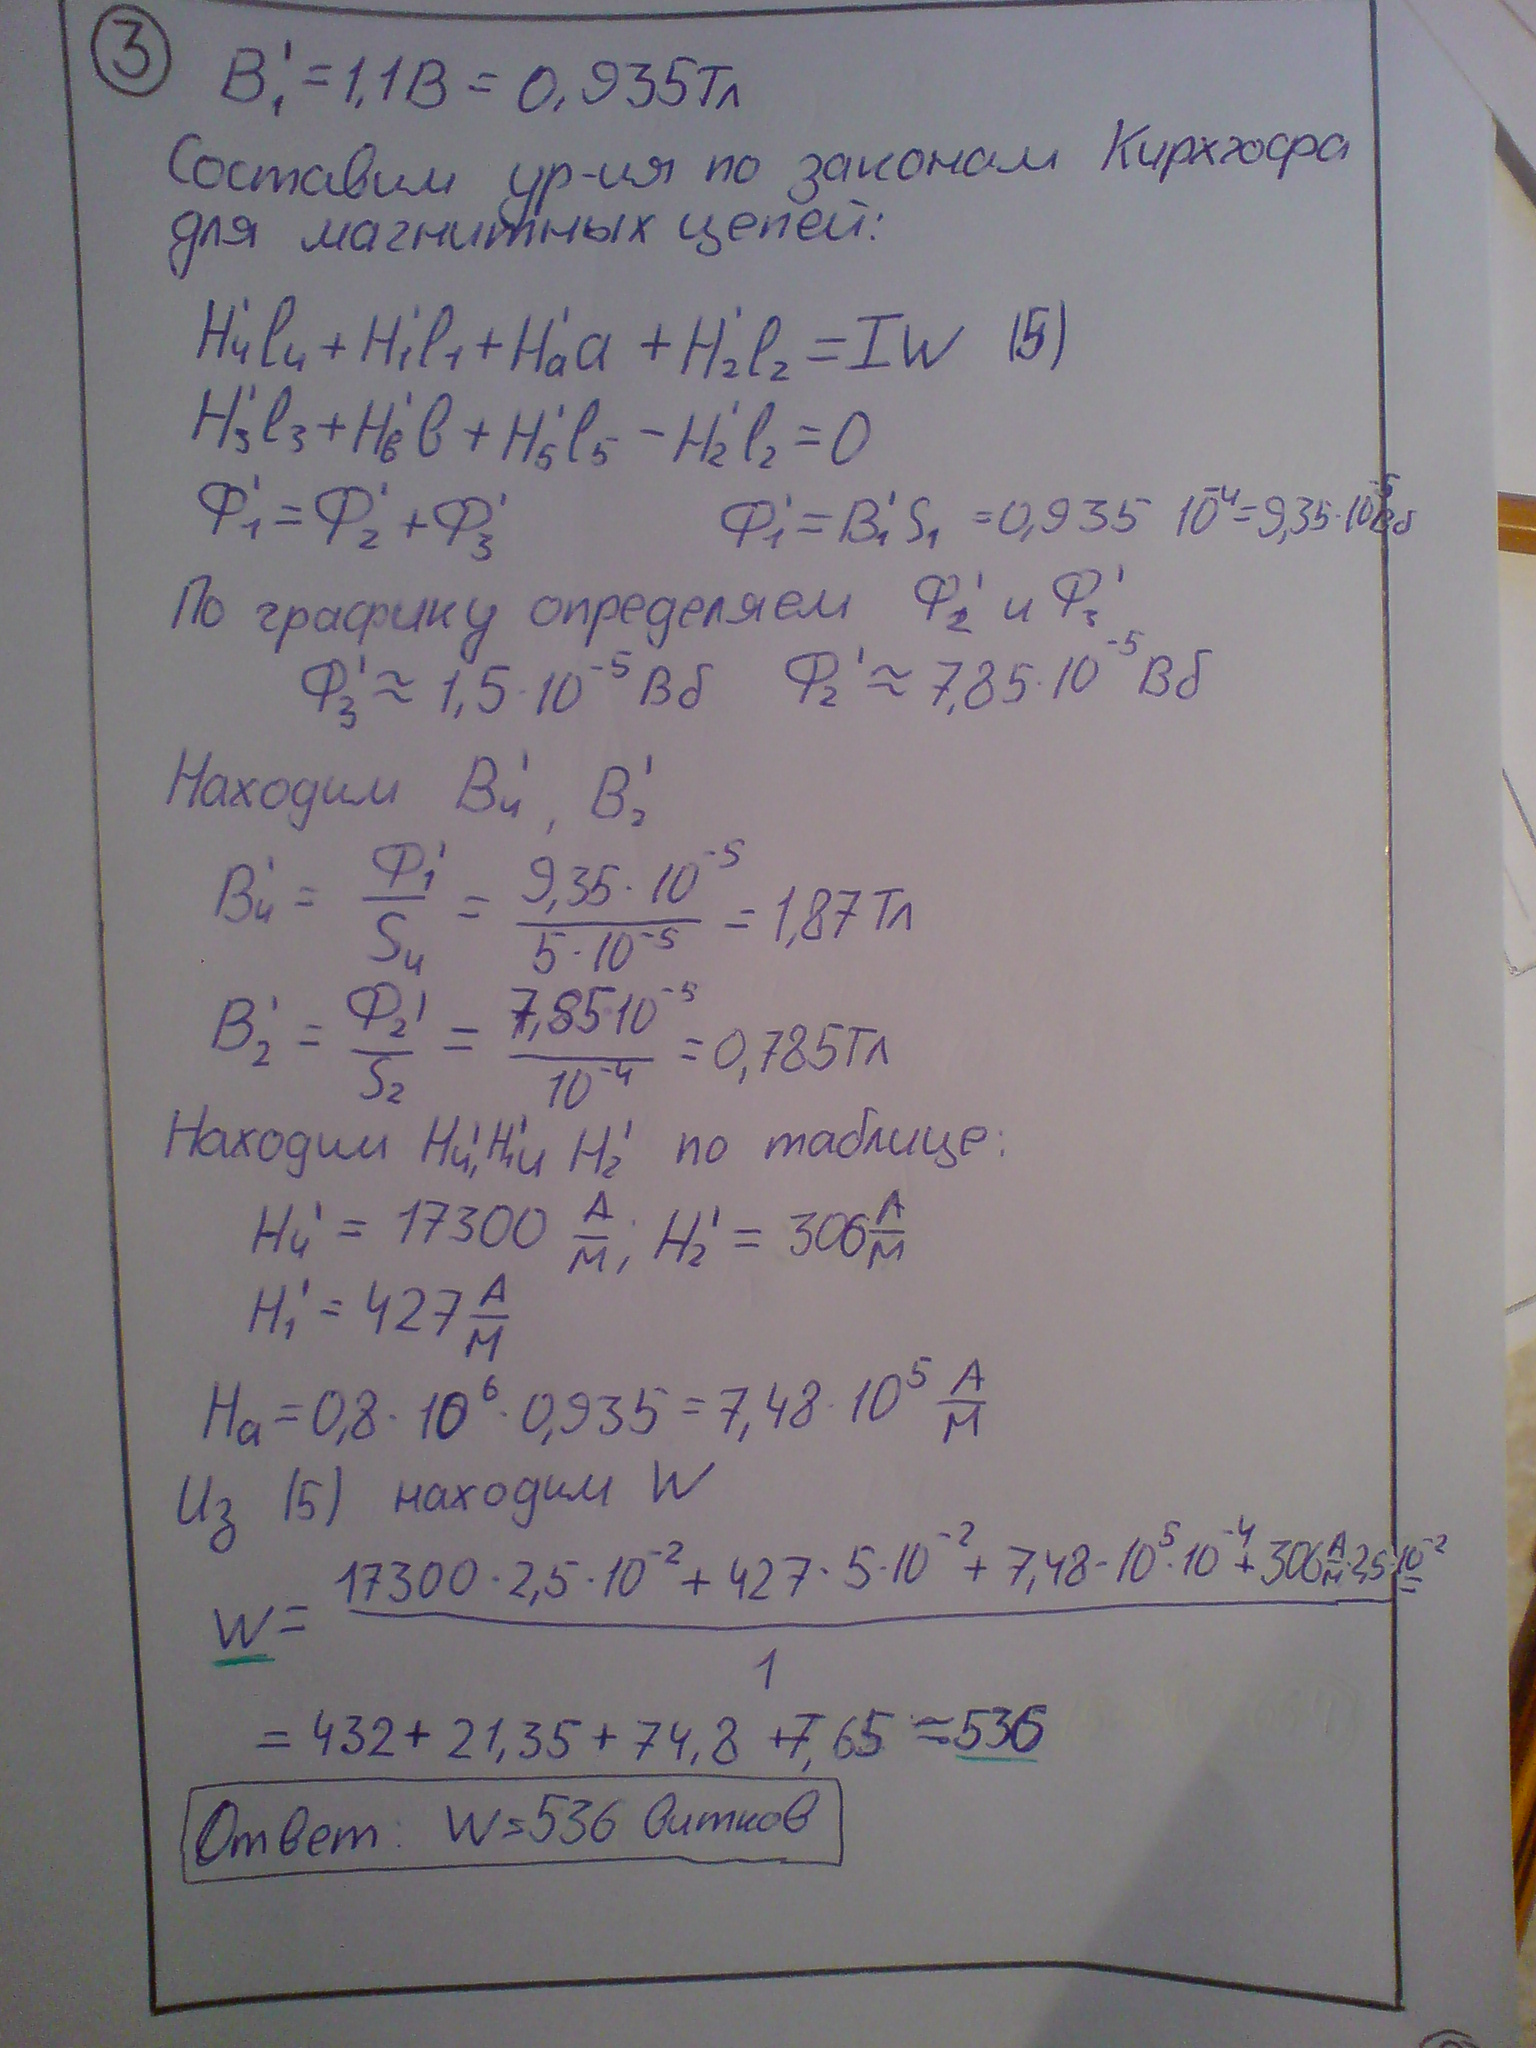 3
B₁' = 1,1B = 0,935Тл
Составим ур-ия по законам Кирхгофа
для магнитных цепей:
H₄'l₄ + H₁'l₁ + Hₐ'a + H₂'l₂ = IW (5)
H₃'l₃ + H_в'в + H₅'l₅ - H₂'l₂ = 0
Ф₁' = Ф₂' + Ф₃' Ф₁' = B₁'S₁ = 0,935 10⁻⁴ = 9,35·10⁻⁵ Вб
По графику определяем Ф₂' и Ф₃'
Ф₃' ≈ 1,5·10⁻⁵ Вб Ф₂' ≈ 7,85·10⁻⁵ Вб
Находим B₄', B₂'
B₄' = Ф₁'/S₄ = 9,35·10⁻⁵/5·10⁻⁵ = 1,87 Тл
B₂' = Ф₂'/S₂ = 7,85·10⁻⁵/10⁻⁴ = 0,785Тл
Находим H₄', H₁' и H₂' по таблице:
H₄' = 17300 А/м; H₂' = 306 А/м
H₁' = 427 А/м
Hₐ = 0,8·10⁶·0,935 = 7,48·10⁵ А/м
Из (5) находим W
W = 17300·2,5·10⁻² + 427·5·10⁻² + 7,48·10⁵·10⁻⁴ + 306 А/м·2,5·10⁻²/1 =
= 432 + 21,35 + 74,8 + 7,65 ≈ 536
Ответ: W = 536 витков